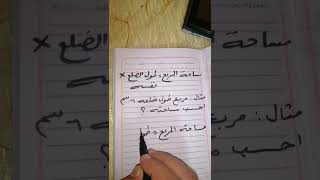 مساحة المربع = طول الضلع ×
نفسه
مثال: مربع طول ضلعه ٦ سم
احسب مساحته ؟
مساحة المربع = طول